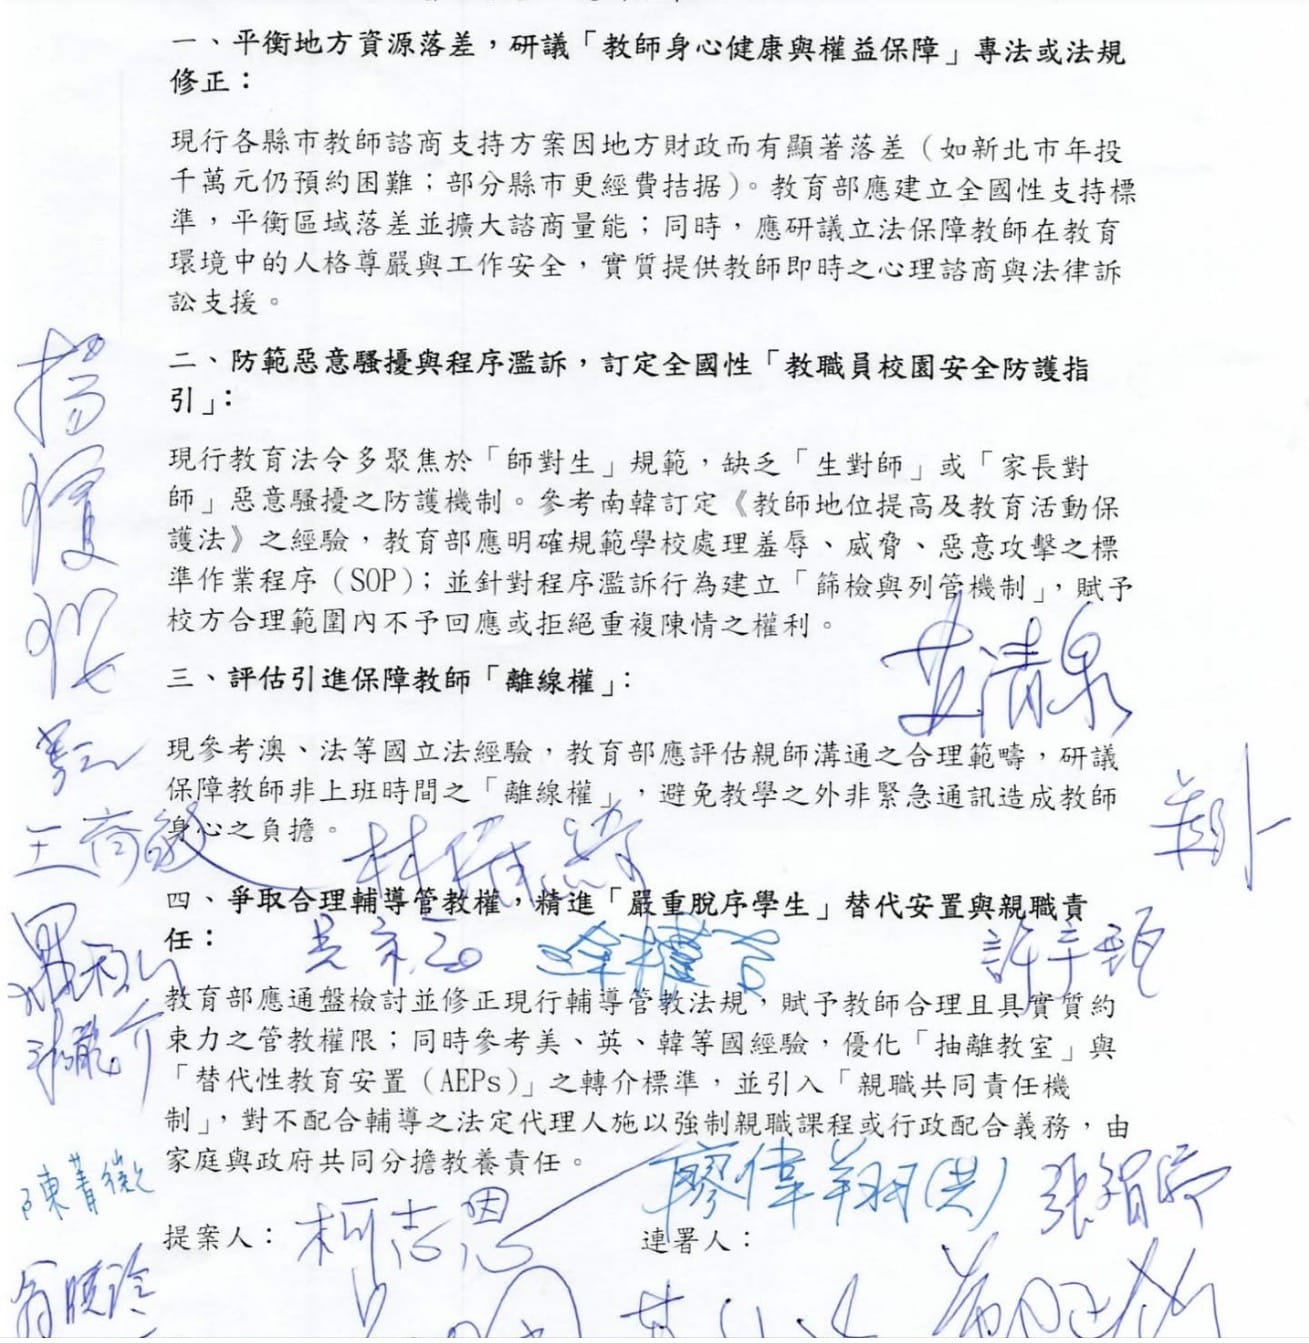 一、平衡地方資源落差，研議「教師身心健康與權益保障」專法或法規
修正：
現行各縣市教師諮商支持方案因地方財政而有顯著落差（如新北市年投
千萬元仍預約困難；部分縣市更經費拮据）。教育部應建立全國性支持標
準，平衡區域落差並擴大諮商量能；同時，應研議立法保障教師在教育
環境中的人格尊嚴與工作安全，實質提供教師即時之心理諮商與法律訴
訟支援。
二、防範惡意騷擾與程序濫訴，訂定全國性「教職員校園安全防護指
引」：
現行教育法令多聚焦於「師對生」規範，缺乏「生對師」或「家長對
師」惡意騷擾之防護機制。參考南韓訂定《教師地位提高及教育活動保
護法》之經驗，教育部應明確規範學校處理羞辱、威脅、惡意攻擊之標
準作業程序（SOP）；並針對程序濫訴行為建立「篩檢與列管機制」，賦予
校方合理範圍內不予回應或拒絕重複陳情之權利。
三、評估引進保障教師「離線權」：
現參考澳、法等國立法經驗，教育部應評估親師溝通之合理範疇，研議
保障教師非上班時間之「離線權」，避免教學之外非緊急通訊造成教師
身心之負擔。
四、爭取合理輔導管教權，精進「嚴重脫序學生」替代安置與親職責
任：
教育部應通盤檢討並修正現行輔導管教法規，賦予教師合理且具實質約
束力之管教權限；同時參考美、英、韓等國經驗，優化「抽離教室」與
「替代性教育安置（AEPs）」之轉介標準，並引入「親職共同責任機
制」，對不配合輔導之法定代理人施以強制親職課程或行政配合義務，由
家庭與政府共同分擔教養責任。
提案人：柯志恩
連署人：
廖偉翔
張智倫
陳菁徽
翁曉玲
許宇甄